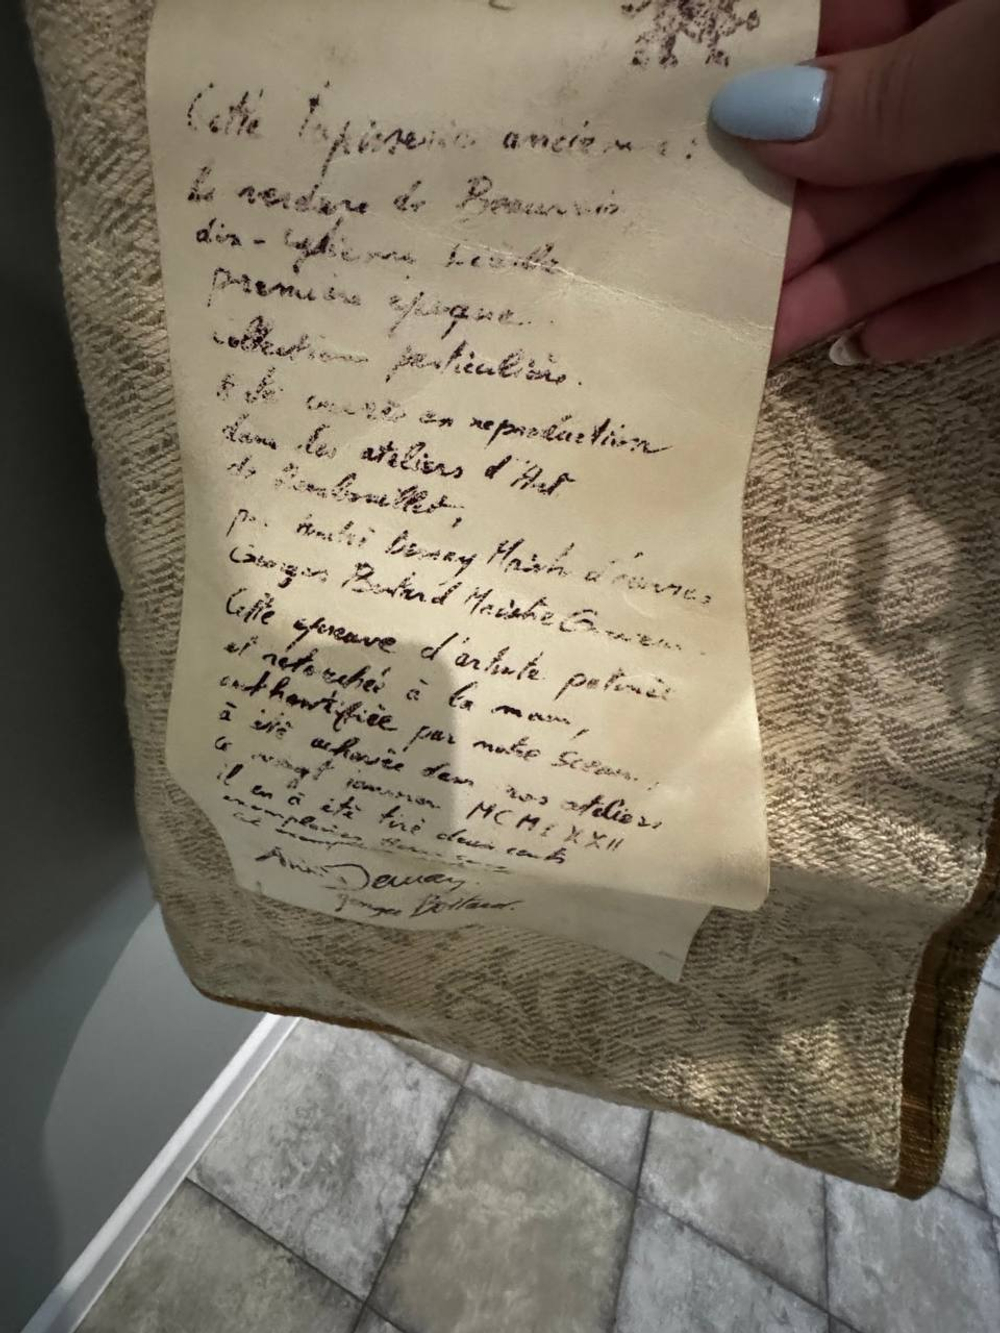 Cette tapisserie ancienne :
la verdure de Beauvais
dix-septième siècle
première époque
collection particulière.
a été œuvrée en reproduction
dans les ateliers d'Art
de Rambouillet,
par André Demay Maître d'œuvres
Georges Bottard Maistre
Cette épreuve d'artiste patinée
et retouchée à la main,
authentifiée par notre sceau,
à été achevée dans nos ateliers
ce vingt janvier
il en à été tiré deux cents
exemplaires
Demay